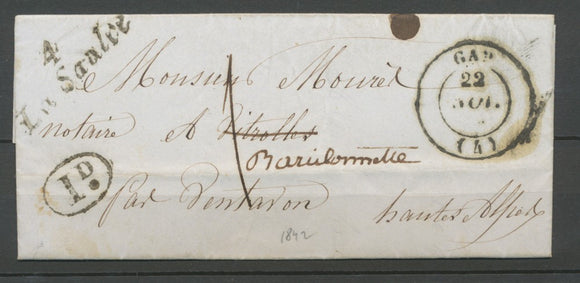 4
La Saulce
GAP
22
NOV.
(4)
Monsieur Mourès
notaire A Vitrolles
Barcillonnette
1D.
par Ventavon
hautes Alpes
1842